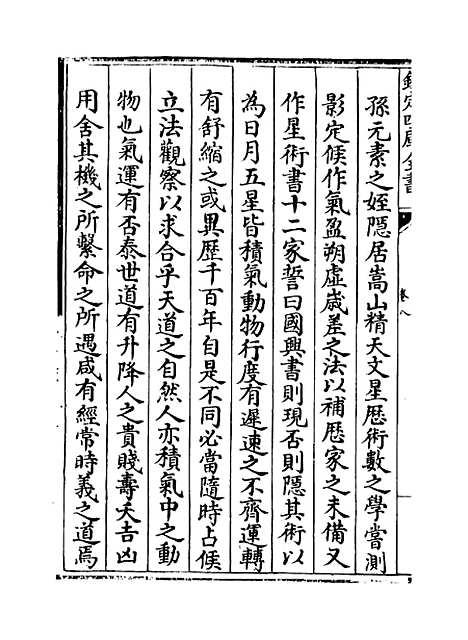 欽定四庫全書
卷八
孫元素之姪隠居嵩山精天文星厯術數之學嘗測
影定候作氣盈朔虚嵗差之法以補厯家之未備又
作星術書十二家誓曰國興書則現否則隠其術以
為日月五星皆積氣動物行度有遲速之不齊運轉
有舒縮之或異歴千百年自是不同必當隨時占候
立法觀察以求合乎天道之自然人亦積氣中之動
物也氣運有否泰世道有升降人之貴賤壽夭吉凶
用舍其機之所繫命之所遇咸有經常時義之道焉